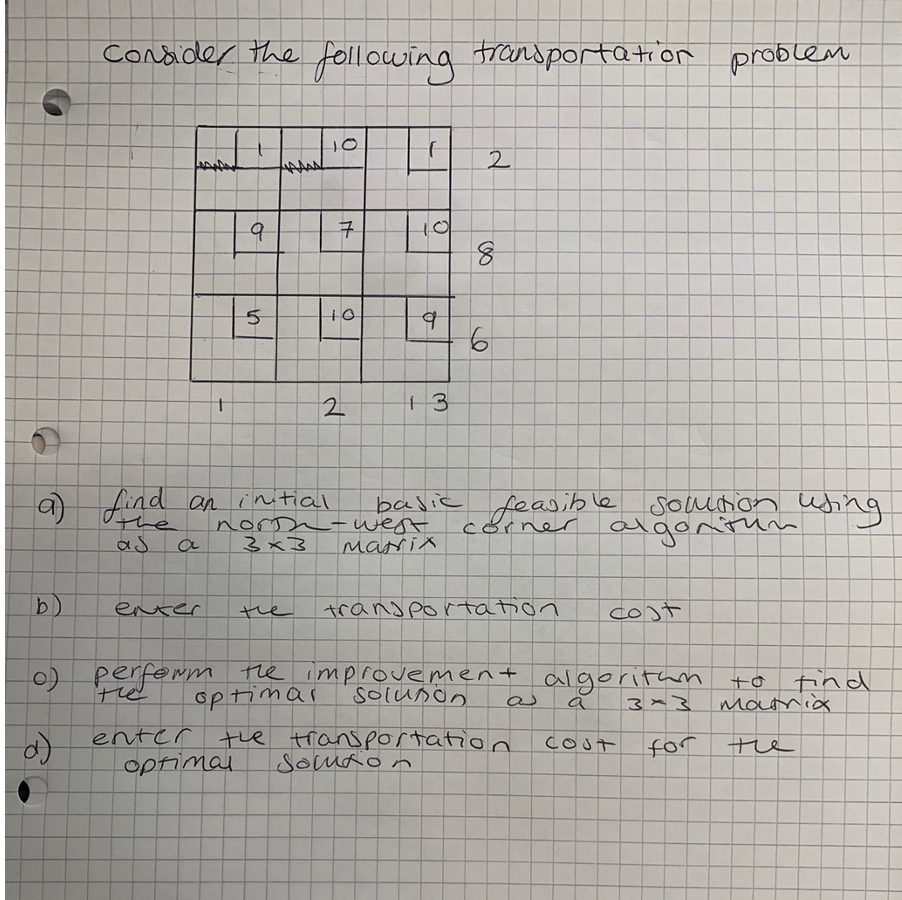 Consider the following transportation problem
1 10 1 2
9 7 10 8
5 10 9 6
1 2 13
a) find an initial basic feasible solution using
the north-west corner algorithm
as a 3x3 matrix
b) enter the transportation cost
c) perform the improvement algorithm to find
the optimal solution as a 3x3 matrix
d) enter the transportation cost for the
optimal solution